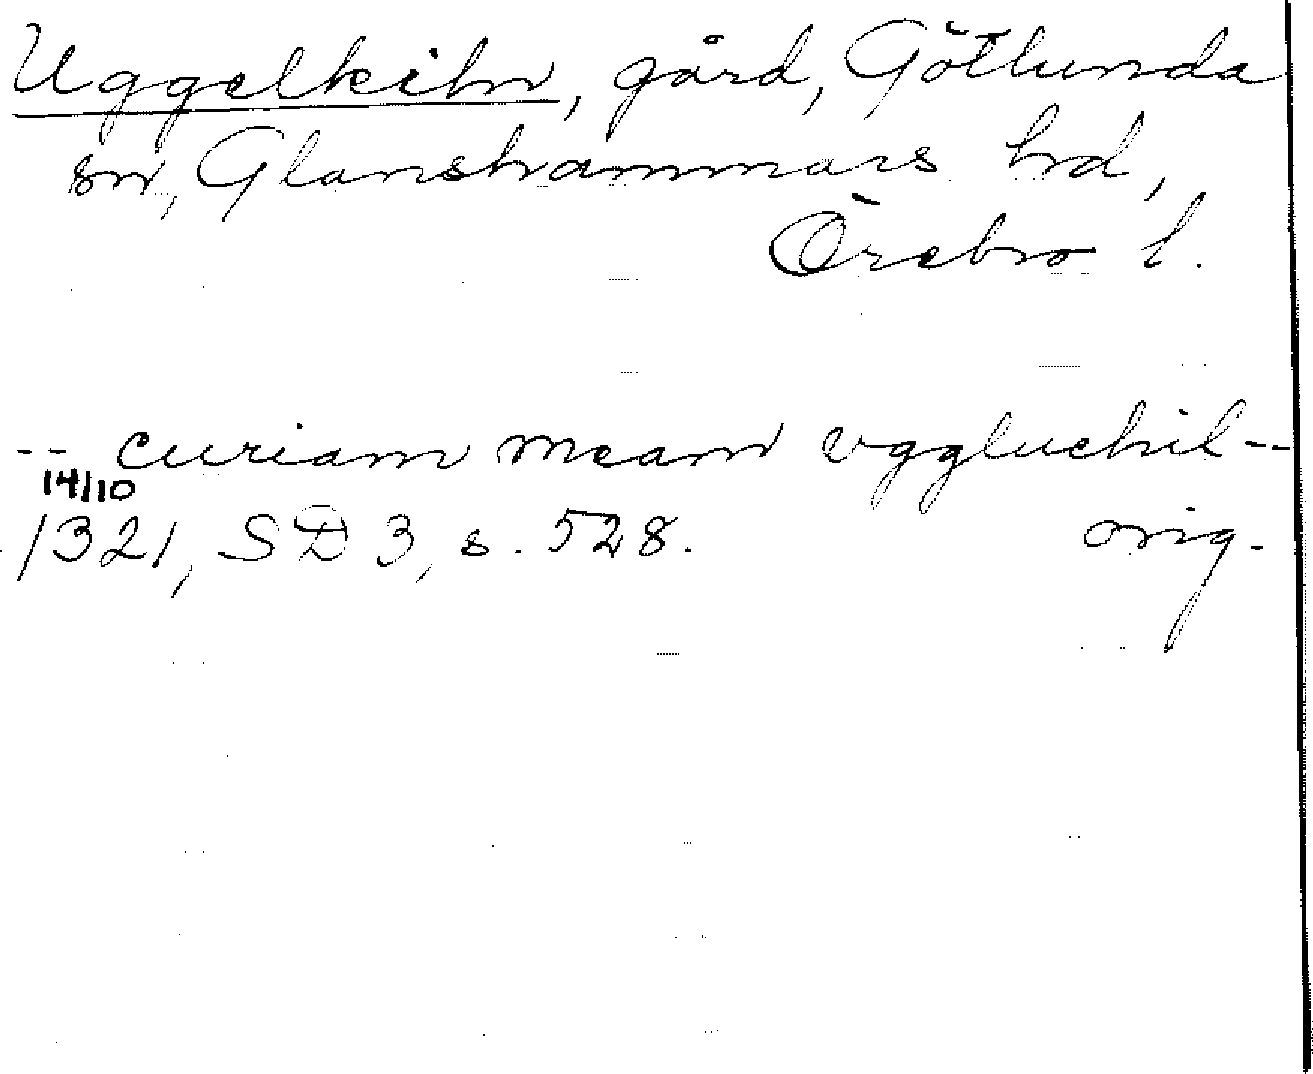 Uggelkihn, gård, Götlunda
sn, Glanshammars hd,
Örebro l.
-- curiam meam vggluchil--
14/10
1321, SD 3, s. 528. orig.